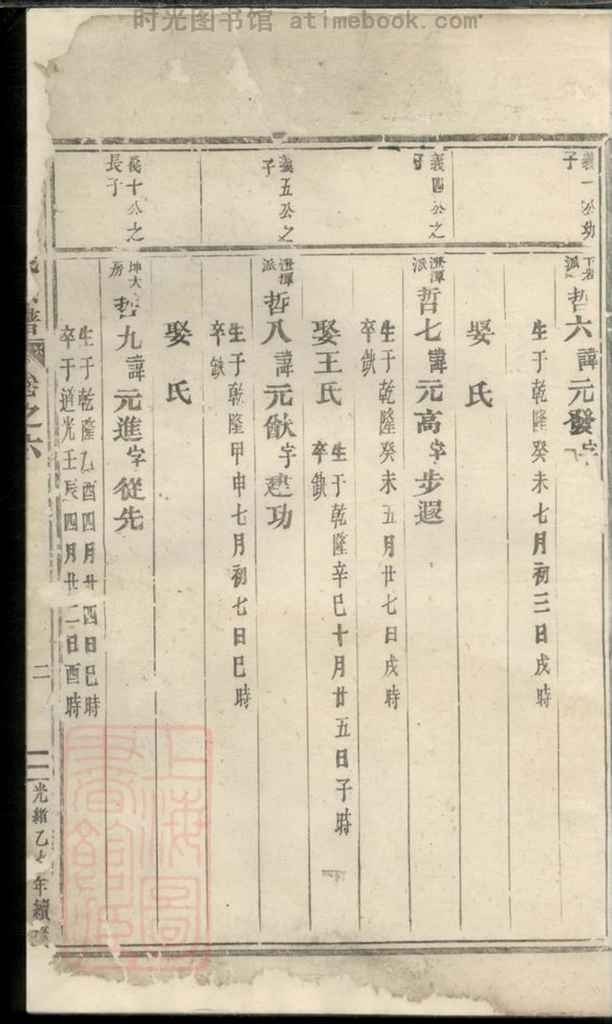 时光图书馆 atimebook.com
義一公幼
子
哲六諱元發字
派
生于乾隆癸未七月初三日戌時
娶氏
義四公之
子
澄潭
派
哲七諱元高字步遐
生于乾隆癸未五月廿七日戌時
卒缺
娶王氏
生于乾隆辛巳十月廿五日子時
卒缺
義五公之
子
澄潭
派
哲八諱元猷字建功
生于乾隆甲申七月初七日巳時
卒缺
娶氏
萬十公之
長子
坤大
房
哲九諱元進字從先
生于乾隆乙酉四月廿四日巳時
卒于道光壬辰四月廿二日酉時
譜
卷之六
二
光緒乙 年續
上海圖
書館藏